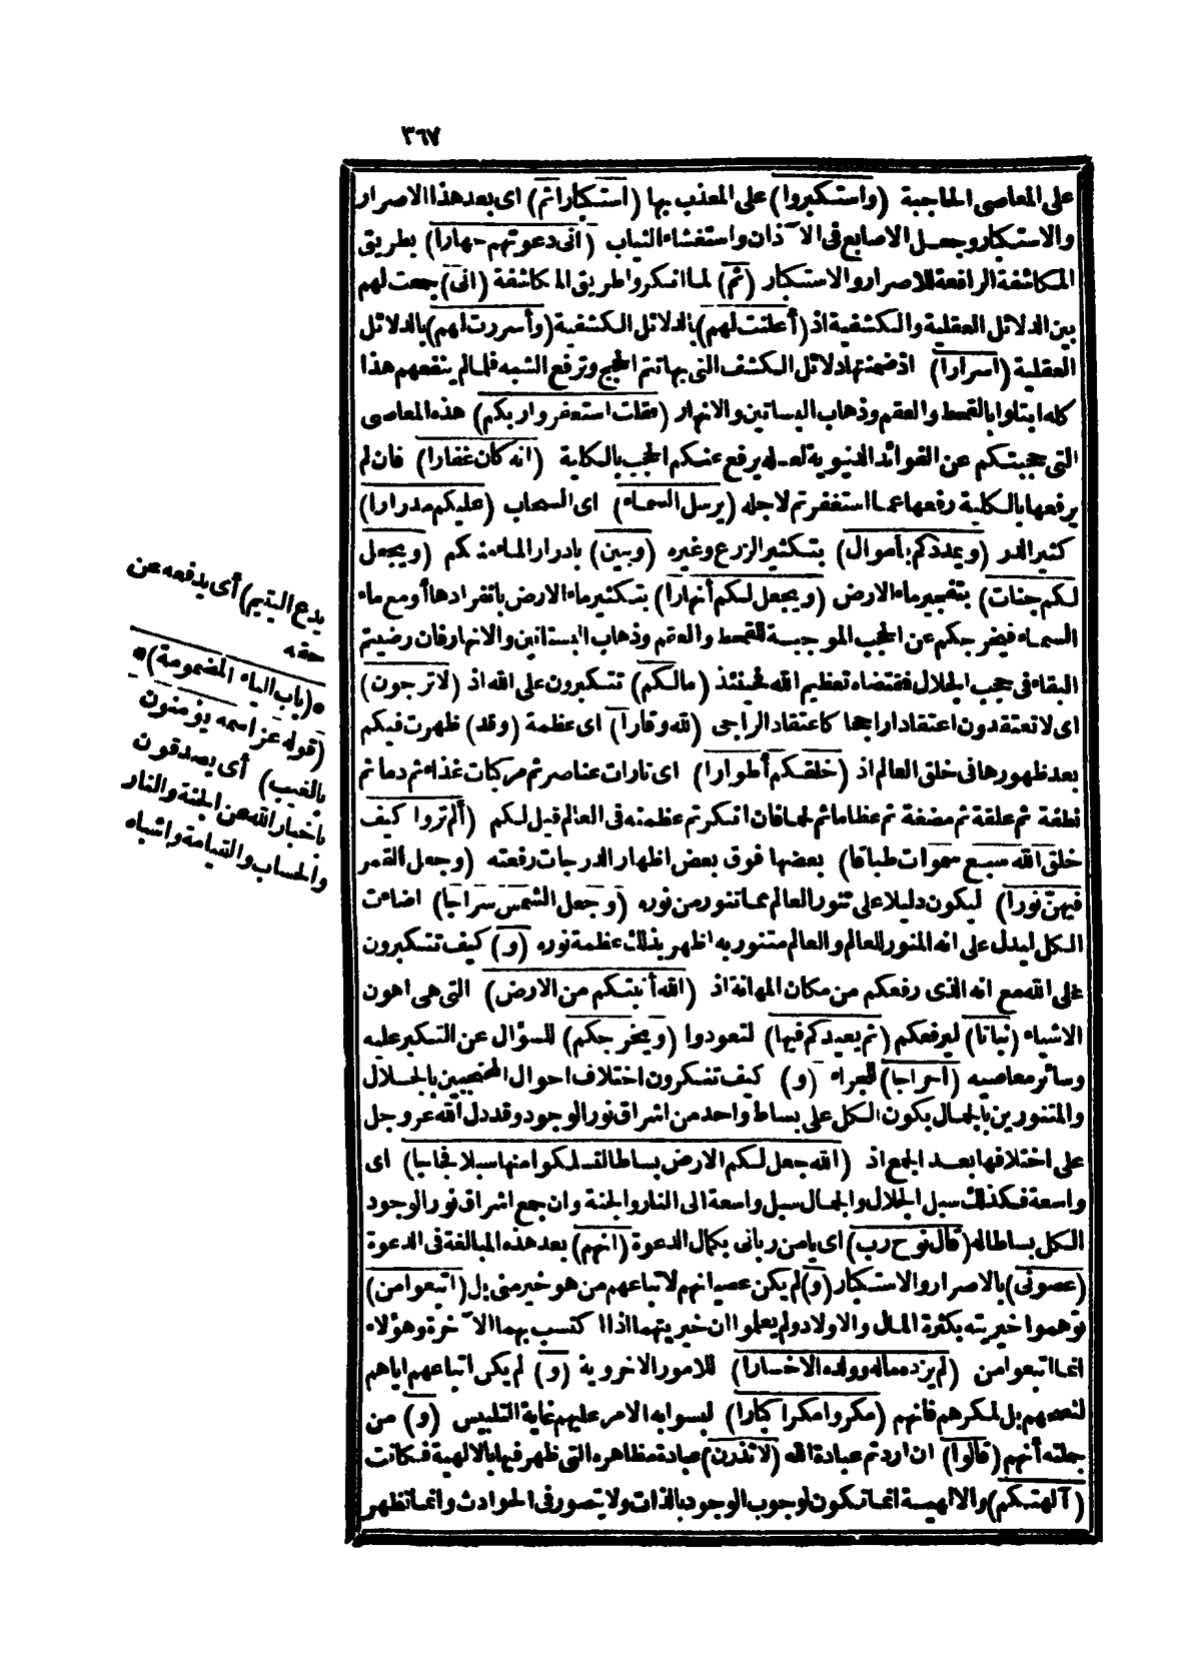 ٣٦٧
على المعاصى الحاجبة (واستكبروا) على المعذب بها (استكبارا ثم) اى بعد هذا الاصرار
والاستكبار وجعل الاصابع فى الآذان واستغشاء الثياب (انى دعوتهم جهارا) بطريق
المكاشفة الرافعة للاصرار والاستكبار (ثم) لما انكروا طريق المكاشفة (انى) جمعت لهم
بين الدلائل العقلية والكشفية اذ (أعلنت لهم) بالدلائل الكشفية (وأسررت لهم) بالدلائل
العقلية (اسرارا) اذ ضمنتها دلائل الكشف التى بها تتم الحجج وترفع الشبه فلما لم ينفعهم هذا
كله ابتلوا بالقحط والعقم وذهاب البساتين والانهار (فقلت استغفروا ربكم) هذه المعاصى
التى حجبتكم عن الفوائد الدنيوية لعله يرفع عنكم الحجب بالكلية (انه كان غفارا) فان لم
يرفعها بالكلية رفعها عما استغفرتم لاجله (يرسل السماء) اى السحاب (عليكم مدرارا)
كثير الدر (ويمددكم بأموال) بتكثير الزرع وغيره (وبنين) بادرار الماء منكم (ويجعل
لكم جنات) بتفجير ماء الارض (ويجعل لكم أنهارا) بتكثير ماء الارض بانفرادها أو مع ماء
السماء فيخرجكم عن الحجب الموجبة للقحط والعقم وذهاب البساتين والانهار فان رضيتم
البقاء فى حجب الجلال فمقتضاه تعظيم الله فحينئذ (مالكم) تتكبرون على الله اذ (لا ترجون)
اى لا تعتقدون اعتقادا راجحا كاعتقاد الراجى (لله وقارا) اى عظمة (وقد) ظهرت فيكم
بعد ظهورها فى خلق العالم اذ (خلقكم أطوارا) اى تارات عناصر ثم مركبات غذاء ثم دما ثم
نطفة ثم علقة ثم مضغة ثم عظاما ثم لحما فان انكرتم عظمته فى العالم قيل لكم (ألم تروا كيف
خلق الله سبع سموات طباقا) بعضها فوق بعض اظهار الدرجات رفعته (وجعل القمر
فيهن نورا) ليكون دليلا على تنور العالم مما تنور من نوره (وجعل الشمس سراجا) اضاءت
الكل ليدل على انه المنور للعالم والعالم متنور به اظهر بذلك عظمة نوره (و) كيف تتكبرون
على الله مع انه الذى رفعكم من مكان المهانة اذ (الله أنبتكم من الارض) التى هى اهون
الاشياء (نباتا) ليرفعكم (ثم يعيدكم فيها) لتعودوا (ويخرجكم) للسؤال عن التكبر عليه
وسائر معاصيه (اخراجا) للجزاء (و) كيف تنكرون اختلاف احوال المحتجبين بالجلال
والمتنورين بالجمال بكون الكل على بساط واحد من اشراق نور الوجود وقد دل الله عز وجل
على اختلافها بعد الجمع اذ (الله جعل لكم الارض بساطا لتسلكوا منها سبلا فجاجا) اى
واسعة فكذلك سبل الجلال والجمال سبل واسعة الى النار والجنة وان جمع اشراق نور الوجود
الكل بساطا له (قال نوح رب) اى يا من ربانى بكمال الدعوة (انهم) بعد هذه المبالغة فى الدعوة
(عصونى) بالاصرار والاستكبار (و) لم يكن عصيانهم لاتباعهم من هو خير منى بل (اتبعوا من)
توهموا خيريته بكثرة المال والاولاد ولم يعلموا ان خيريتهما اذا اكتسب بهما الآخرة وهؤلاء
انما اتبعوا من (لم يزده ماله وولده الا خسارا) للامور الاخروية (و) لم يكن اتباعهم اياهم
لنصحهم بل لمكرهم فانهم (مكروا مكرا كبارا) لبسوا به الامر عليهم غاية التلبيس (و) من
جملته أنهم (قالوا) ان اردتم عبادة الله (لا تذرن) عبادة مظاهره التى ظهر فيها بالالهية فكانت
(آلهتكم) والالهية انما تكون لوجوب الوجود بالذات ولا يتصور فى الحوادث وانما تظهر
يدع اليتيم) أى يدفعه عن
حقه
*(باب الياء المضمومة)*
(قوله عز اسمه يؤمنون
بالغيب) أى يصدقون
بأخبار الله عن الجنة والنار
والحساب والقيامة واشباه